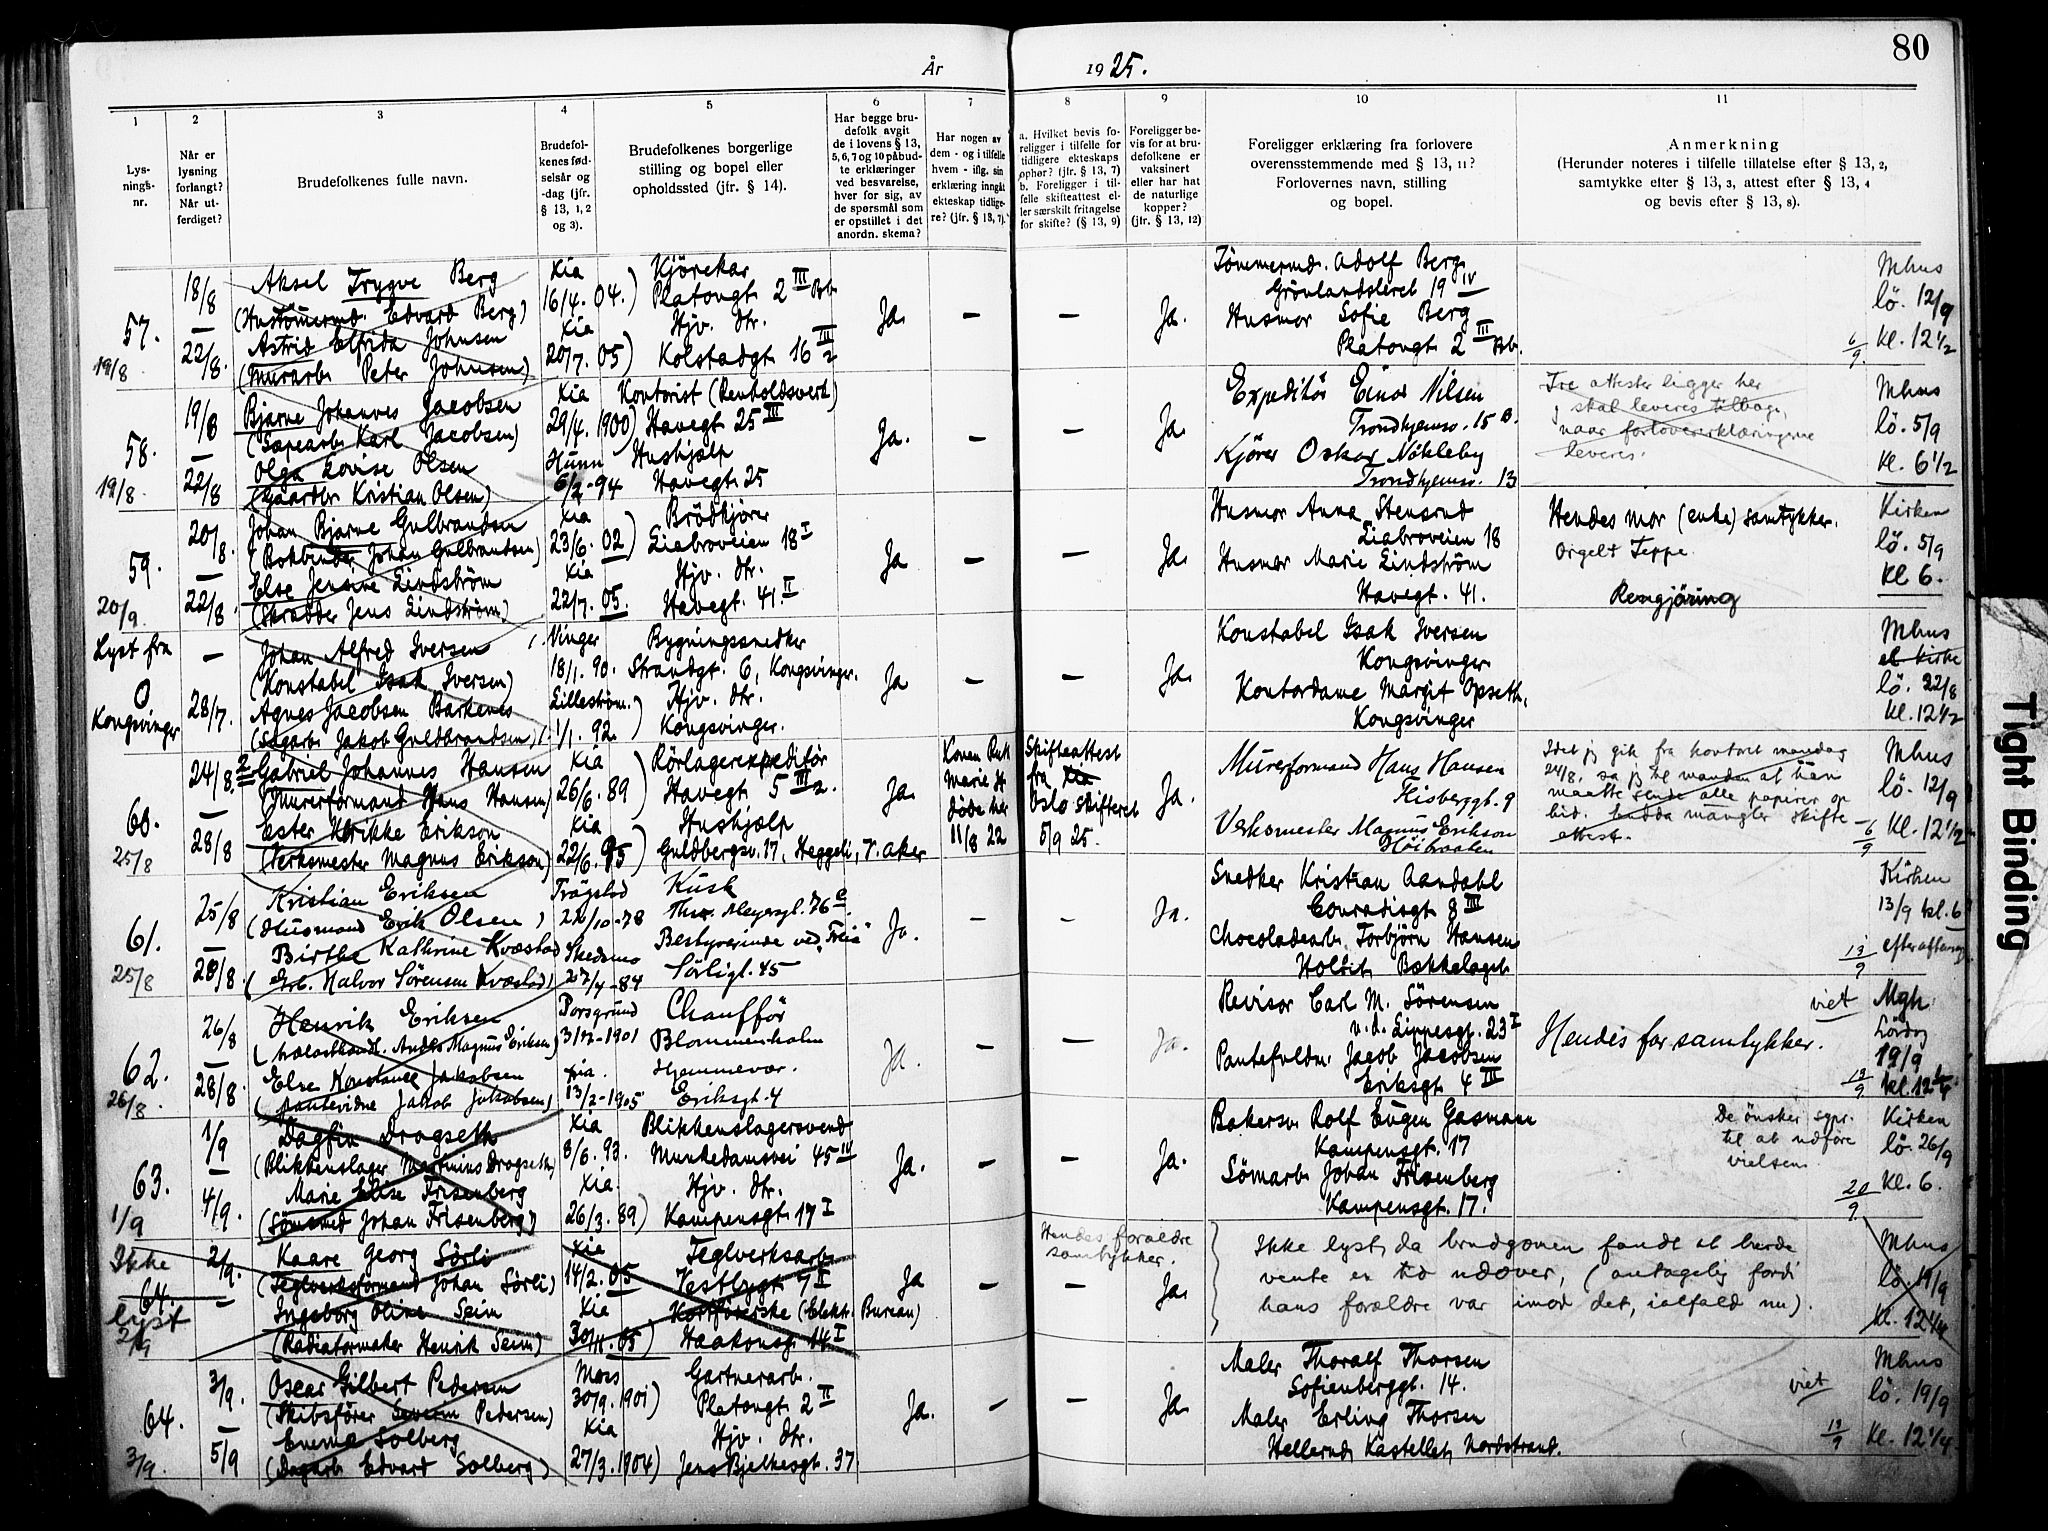 År 1925.
80
1 2 3 4 5 6 7 8 9 10 11
Lys-
nings-
nr.
Når er
lysning
forlangt?
Når ut-
ferdiget?
Brudefolkenes fulle navn.
Brudefol-
kenes fød-
selsår og
-dag (jfr.
§ 13, 1, 2
og 3).
Brudefolkenes borgerlige
stilling og bopel eller
opholdssted (jfr. § 14).
Har begge bru-
defolk avgit
de i lovens § 13,
5, 6, 7 og 10 påbud-
te erklæringer
ved besvarelse,
hver for sig, av
de spørsmål som
er opstillet i det
anordn. skema?
Har nogen av
dem - og i tilfelle
hvem - iflg. sin
erklæring inngått
ekteskap tidlige-
re? (jfr. § 13, 7).
a. Hvilket bevis fo-
religger i tilfelle for
tidligere ekteskaps
ophør? (jfr. § 13, 7)
b. Foreligger i til-
felle skifteattest el-
ler særskilt fritagelse
for skifte? (§ 13, 9)
Foreligger be-
vis for at bru-
defolkene er
vaksinert
eller har hat
de naturlige
kopper?
(jfr. § 13, 12)
Foreligger erklæring fra forlovere
overensstemmende med § 13, 11?
Forlovernes navn, stilling
og bopel.
Anmerkning
(Herunder noteres i tilfelle tillatelse efter § 13, 2,
samtykke efter § 13, 3, attest efter § 13, 4
og bevis efter § 13, 8).
57.
19/8
18/8
—
22/8.
Aksel Trygve Berg
Edvard Berg)
Astrid Elfrida Johnsen
(Murarb. Peter Johnsen)
Kia
16/4. 04.)
Kia
20/7. 05)
Kjörekar
Platougt. 2 III
Hjv. dtr.
Kolstadgt. 16 III 2
Ja.
—
—
Ja.
Tömmermd. Adolf Berg
Grönlandsleret 19 IV
Husmor Sofie Berg
Platougt. 2 III
6/9.
Mhus
lö. 12/9
kl. 12 1/2
58.
19/8.
19/8
—
22/8
Bjarne Johannes Jacobsen
(Sæpearb. Karl Jacobsen)
Olga Lovise Olsen
(Gaardbr. Kristian Olsen)
Kia
29/4. 1900)
Hunn
6/2 - 94
Kontorist (Renholdsverk)
Havegt. 25 III
Hushjælp
Havegt. 25
Ja.
—
—
Ja.
Expeditör Einar Nilsen
Trondhjemsv. 15 B.
Kjörer Oskar Nökleby
Trondhjemsv. 13
Tre attester ligger her
skal leveres tilbage,
naar forlovererklæringerne
leveres.
Mhus
lö. 5/9
kl. 6 1/2
59.
20/9.
20/8.
—
22/8.
Johan Bjarne Gulbrandsen
(Bokbinder Johan Gulbrandsen)
Else Jensine Lindström
(Skrædder Jens Lindström)
Kia
23/6. 02)
Kia
22/7. 05.
Brödkjörer
Liabroveien 18 I
Hjv. dtr.
Havegt. 41. II
Ja
—
—
Ja.
Husmor Anna Stensrud
Liabroveien 18
Husmor Marie Lindström
Havegt. 41.
Hendes mor (enke) samtykker.
Orgel. Teppe.
Rengjöring
Kirken
lö. 5/9
kl 6.
Lyst fra
O
Kongsvinger
—
28/7.
Johan Alfred Iversen
(Konstabel Isak Iversen)
Agnes Jacobsen Barkenes
(Sagarb. Jakob Guldbrandsen)
Vinger
18/1. 90.
Lilleström.
1/1. 92.
Bygningssnedker
Strandgt. 6, Kongsvinger.
Hjv. dtr.
Kongsvinger.
Ja
—
—
Ja.
Konstabel Isak Iversen
Kongsvinger
Kontordame Margit Opseth,
Kongsvinger
Mhus
el kirke
lö. 22/8
kl. 12 1/2
60.
25/8
24/8.
—
28/8
Gabriel Johannes Hansen
(Murerformand Hans Hansen)
Ester Erikson
(Verksmester Magnus Erikson)
Kia
26/6. 89)
Kia
22/6. 95)
Rörlagerexpeditör
Havegt. 5 III 2.
Hushjælp
Guldbergsv. 17, Heggeli, v. aker
Ja.
Konen
Marie H
döde
11/8 22
Skifteattest
fra Kia
Oslo skifteret
5/9 25.
Ja.
Murerformand Hans Hansen
Fisberggt. 9
Verksmester Magnus Erikson
Höibraaten
Idet jeg gik fra kontoret mandag
24/8, sa jeg til manden at han
maatte sende alle papirer op
hid. Endda mangler skifte
attest.
6/9
Mhus
lö. 12/9
kl. 12 1/2
61.
25/8
25/8
—
28/8
Kristian Eriksen
(Husmand Erik Olsen)
Birthe Kathrine Kvæstad
(Grb. Halvor Sörensen Kvæstad)
Trögstad
22/10-78
Skedsmo
27/4-84
Kusk
Thv. Meyersgt. 76 c
Bestyrerinde ved „Freia"
Sörligt. 45
Ja.
—
—
Ja.
Snedker Kristian Aandahl
Conradisgt. 8 III
Chocoladearb. Torbjörn Hansen
Holtet Bækkelaget
13/9
Kirken
13/9 kl. 6
efter aftensg.
62.
26/8.
26/8
—
28/8.
Henrik Eriksen
Anders Magnus Eriksen)
Else Konstance Jakobsen
(Pantevidne Jakob Jakobsen)
Porsgrund
3/12-1901
Kia.
13/2-1905
Chaufför
Blommenholm
Hjemmevær.
Eriksgt. 4
Ja.
—
—
Ja.
Revisor Carl M. Sörensen
v. d. Lippesgt. 23 I
Pantefuldm. Jacob Jacobsen
Eriksgt. 4 III
Hendes far samtykker.
viet
13/9
Mgh.
Lördag
19/9
kl. 12 1/4
63.
1/9
1/9
—
4/9.
Dagfin Dragseth
(Blikkenslager Martinius Dragseth)
Marie Elise Frisenberg
(Sömsmed Johan Frisenberg)
Kia
8/6. 93.
Kia.
26/3. 89)
Blikkenslagersvend
Munkedamsvei 45 IV
Hjv. dtr.
Kampensgt. 17 I
Ja.
—
—
Ja.
Bakersv. Rolf Eugen Gasmann
Kampensgt. 17
Sömarb. Johan Frisenberg
Kampensgt. 17.
De ønsker spr.
til at udföre
vielsen.
20/9.
Kirken
lö. 26/9
Kl. 6.
Ikke
64.
lyst
2/9
2/9.
—
Kaare Georg Sörli
(Teglverksformand Johan Sörli)
Ingeborg Oline Seim
(Radiatormaker Henrik Seim)
Kia
14/2. 05
Kia
05)
Teglverksarb.
Vestbygt. 7 II
Kortförerske (Elekt. Bureau)
Haakonsgt. 14 I
Ja
—
Hendes forældre
samtykker.
—
Ja.
Ikke lyst, da brudgomen fandt at burde
vente en tid udover, (antagelig fordi
hans forældre var imod det, ialfald nu).
Mhus
lö. 19/9
kl. 12 1/4
64.
3/9.
3/9.
—
5/9
Oscar Gilbert Pedersen
(Skibsförer Severin Pedersen)
Emma Solberg
(Dagarb. Edvard Solberg)
Moss
30/9. 1901)
Kia
27/3. 1904)
Gartnerarb.
Platougt. 2 II
Hjv. dtr.
Jens Bjelkesgt. 37
Ja.
—
—
Ja.
Maler Thoralf Thorsen
Sofienberggt. 14.
Maler Erling Thorsen
Hellerud, Kastellet, Nordstrand.
viet
13/9
Mhus
lö. 19/9
Kl. 12 1/4.
Tight Binding